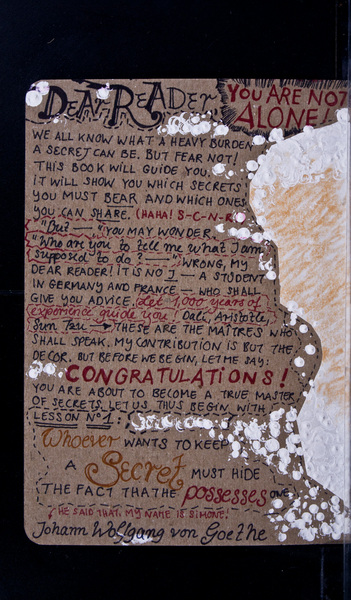 DEAR READER
YOU ARE NOT
ALONE!
WE ALL KNOW WHAT A HEAVY BURDEN
A SECRET CAN BE. BUT FEAR NOT!
THIS BOOK WILL GUIDE YOU.
IT WILL SHOW YOU WHICH SECRETS
YOU MUST BEAR AND WHICH ONES
YOU CAN SHARE. (HAHA! S-C-N-R)
"But? — " YOU MAY WONDER
"Who are you to tell me what I am
supposed to do? — " WRONG, MY
DEAR READER! IT IS NO I — A STUDENT
IN GERMANY AND FRANCE — WHO SHALL
GIVE YOU ADVICE. Let 1,000 years of
experience guide you! Dali, Aristotle,
Sun Tsu → THESE ARE THE MAÎTRES WHO
SHALL SPEAK. MY CONTRIBUTION IS BUT THE
DECOR. BUT BEFORE WE BEGIN, LET ME SAY:
CONGRATULATIONS!
YOU ARE ABOUT TO BECOME A TRUE MASTER
OF SECRETS. LET US THUS BEGIN WITH
LESSON N°1:
Whoever WANTS TO KEEP
A Secret MUST HIDE
THE FACT THAT HE possesses ONE.
HE SAID THAT. MY NAME IS SIMONE!
Johann Wolfgang von Goethe